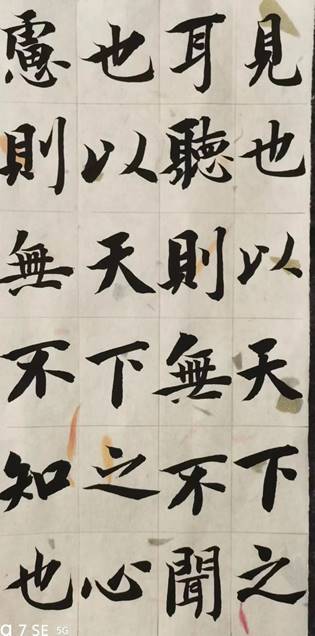 見也以天下之
耳聽則無不聞
也以天下之心
慮則無不知也
α 7 SE 5G